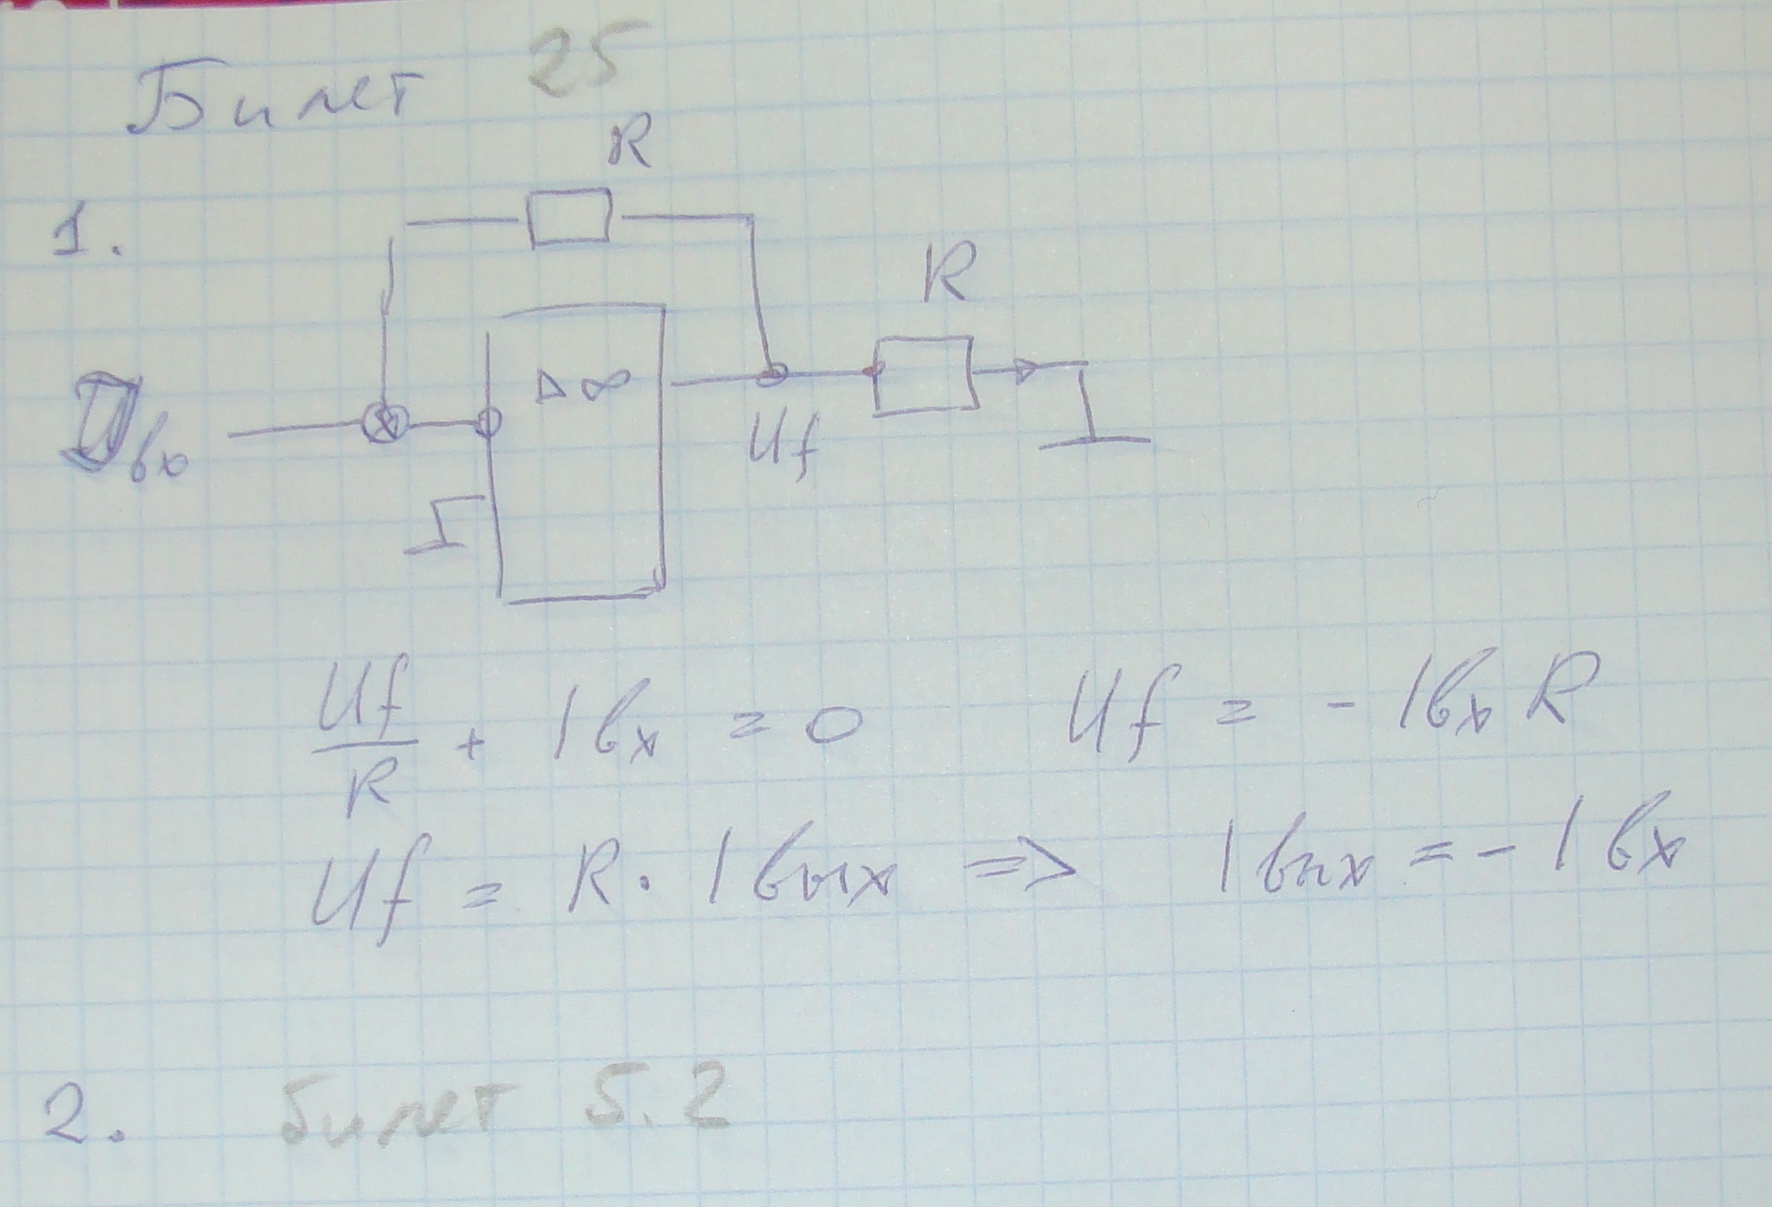 Билет 25
R
1.
R
Iвх
▷ ∞
Uf
Uf/R + Iвх = 0 Uf = - Iвх R
Uf = R · Iвых => Iвых = - Iвх
2. Билет 5.2